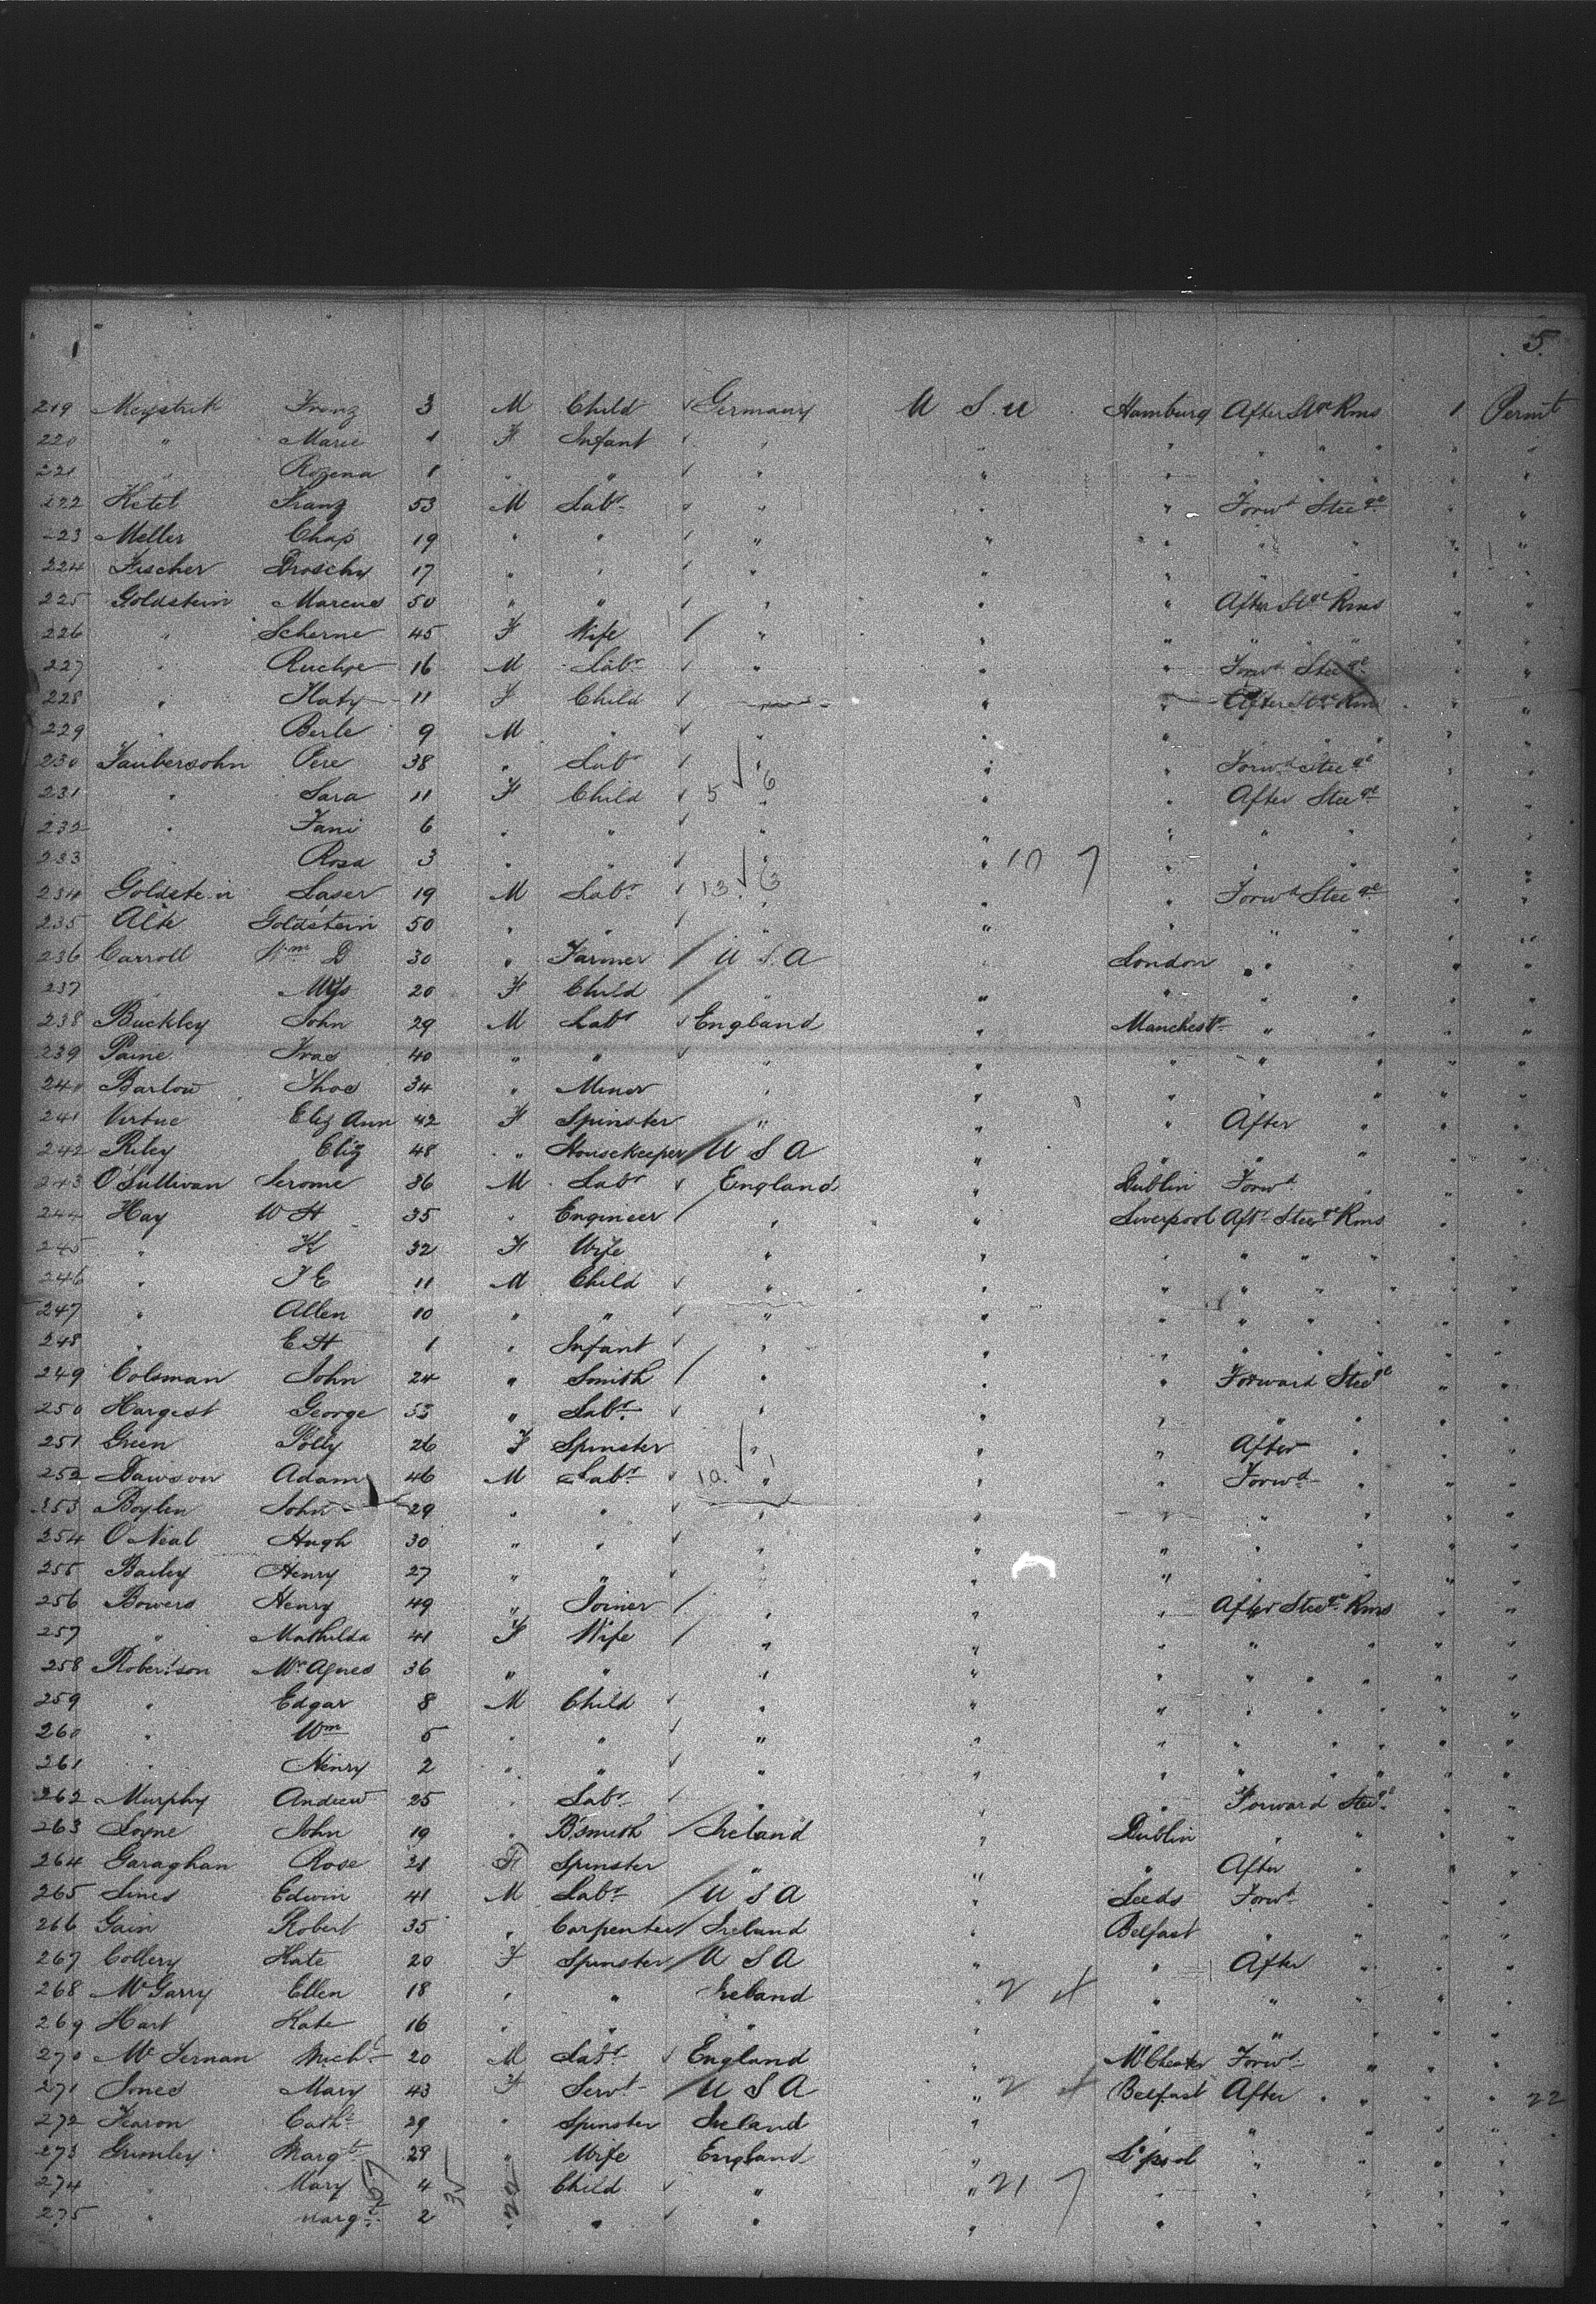 1 5.
219 Meystrik Franz 3 M Child Germany U S A Hamburg After Stge Rms 1 Permit
220 " Marie 1 F Infant " " " " " " " "
221 " Rozena 1 " " " " " " " " " "
222 Franz 53 M Labr " " " Forwd Steege " "
223 Meller Chas 19 " " " " " " " " "
224 Fischer 17 " " " " " " " " "
225 Goldstein Marcus 50 " " " " " After Stge Rms " "
226 " Scherne 45 F Wife " " " " " " " "
227 " 16 M Labr " " " Forwd Steege " "
228 " Katy 11 F Child " " " After Stge Rms " "
229 " Berle 9 M " " " " " " " " "
230 Taubersohn Pere 38 " Labr " " " Forwd Steege " "
231 " Sara 11 F Child 5 6 " " " After Steege " "
232 " Fani 6 " " " " " " " " "
233 " Rosa 3 " " " " 10 7 " " " " "
234 Goldstein Laser 19 M Labr 13 6 " " " Forwd Steege " "
235 Alte Goldstein 50 " " " " " " " " "
236 Carroll Wm D 30 " Farmer U S A " London " " " "
237 " 20 F Child " " " " " " "
238 Buckley John 29 M Labr England " Manchestr " " " "
239 Paine Fras 40 " " " " " " " " "
240 Barlow Thos 34 " Miner " " " " " " "
241 Virtue Eliz Ann 42 F Spinster " " " After " " "
242 Riley Eliz 48 " Housekeeper U S A " " " " " "
243 O'Sullivan Jerome 36 M Labr England " Dublin Forwd " " "
244 Hay W H 35 " Engineer " " Liverpool Aftr Steerge Rms " "
245 " K 32 F Wife " " " " " " " "
246 " J E 11 M Child " " " " " " " "
247 " Allen 10 " " " " " " " " " "
248 " E H 1 " Infant " " " " " " " "
249 Colsman John 24 " Smith " " " Forward Steege " "
250 Hargest George 53 " Labr " " " " " " "
251 Green Polly 26 F Spinster " " " After " " "
252 Dawson Adam 46 M Labr 10 1 " " " Forwd " " "
253 Boylen John 29 " " " " " " " " "
254 O Neal Hugh 30 " " " " " " " " "
255 Bailey Henry 27 " " " " " " " " "
256 Bowers Henry 49 " Joiner " " " After Steege Rms " "
257 " Mathilda 41 F Wife " " " " " " "
258 Robertson Mrs Agnes 36 " " " " " " " " " "
259 " Edgar 8 M Child " " " " " " " "
260 " Wm 5 " " " " " " " " " "
261 " Henry 2 " " " " " " " " " "
262 Murphy Andrew 25 " Labr " " " Forward Steege " "
263 Loyne John 19 " B'smith Ireland " Dublin " " " "
264 Garaghan Rose 21 F Spinster " " " After " " "
265 Lines Edwin 41 M Labr U S A " Leeds Forwd " " "
266 Gain Robert 35 " Carpenter Ireland " Belfast " " " "
267 Collery Kate 20 F Spinster U S A " " After " " "
268 McGarry Ellen 18 " " Ireland " 2 " " " " "
269 Hart Kate 16 " " " " " " " " "
270 McTernan Michl 20 M Labr England " M'Chester Forwd " " "
271 Jones Mary 43 F Servt U S A " 2 Belfast After " " " 22
272 Fearon Cathe 29 " Spinster Ireland " " " " " "
273 Grimley Margt 29 " Wife England " L'pool " " " "
274 " Mary 4 " Child " " 21 7 " " " " "
275 " Margt 2 " " " " " " " " "
35 22